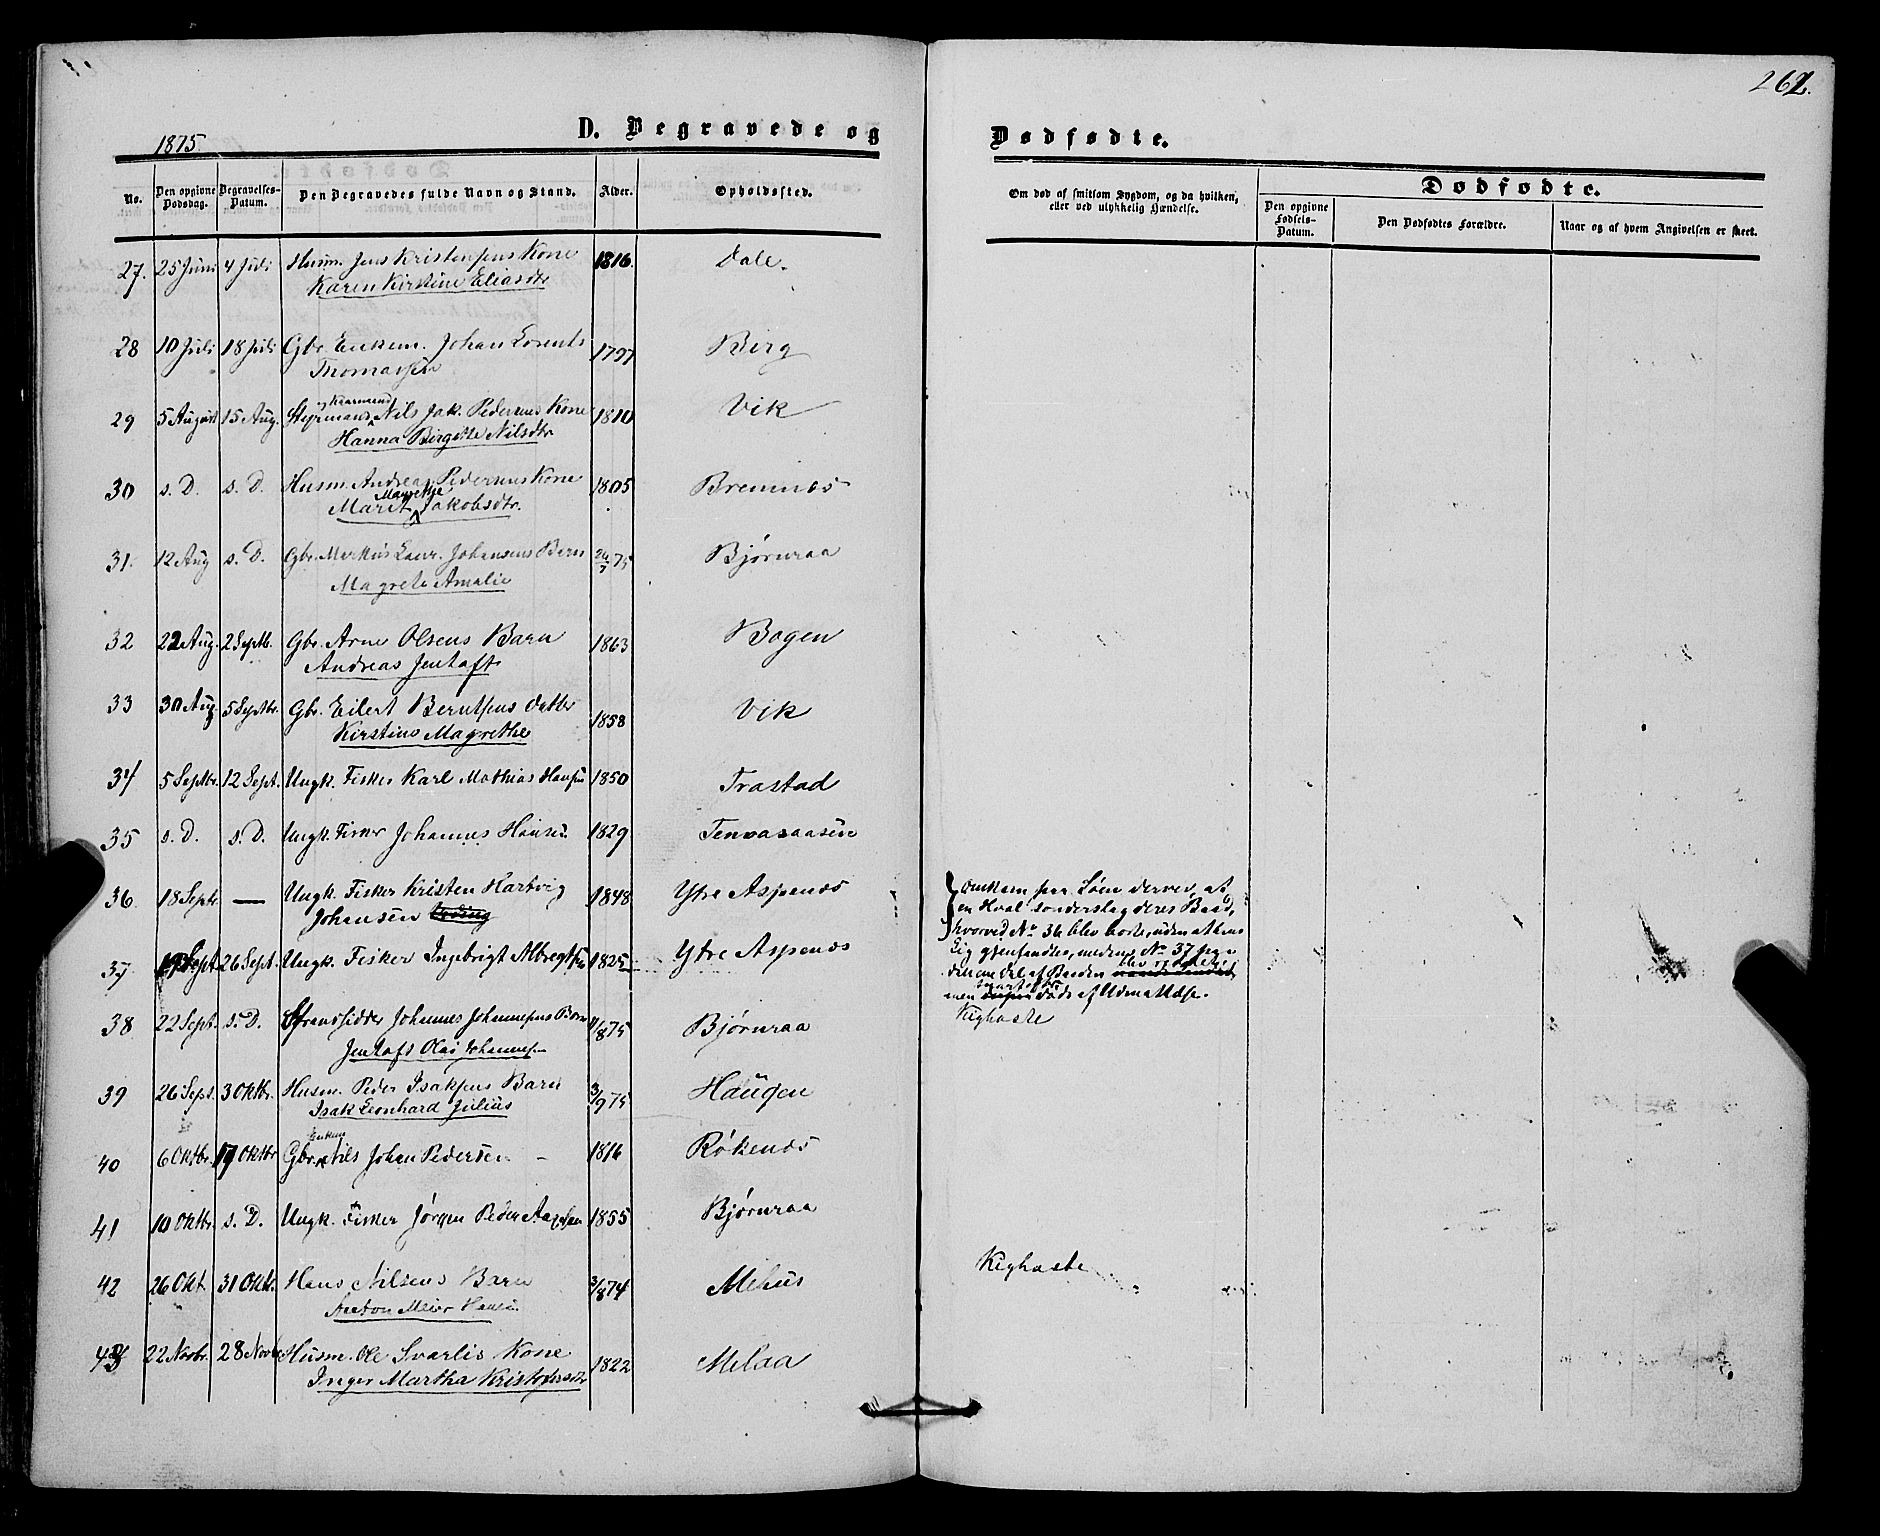 262.
1875.
D. Begravede og Dødfødte.
No. Den opgivne Dødsdag. Begravelses-Datum. Den Begravedes fulde Navn og Stand. Alder. Opholdssted. Om død af smitsom Sygdom, og da hvilken, eller ved ulykkelig Hændelse. Dødfødte.
Den opgivne Fødsels-Datum. Den Dødfødtes Forældre. Naar og af hvem Angivelsen er skeet.
27. 25 Juni 4 Juli Husm. Jens Kristensens Kone 1816. Dale.
Karen Kirstine Eliasdtr
28 10 Juli 18 Juli Gbr. Enkem. Johan Lorents 1797 Berg
Thomassen
29 5 August 15 Aug. Styrmand og Kaarmand Nils Jak. Pedersens Kone 1810 Vik
Hanna Birgitte Nilsdtr
30 s. D. s. D. Husm. Andreas Pedersens Kone 1805 Bremnes
Marit Magrethe Jakobsdtr.
31. 12 Aug s. D. Gbr. Markus Laur. Johansens Barn 24/7 75 Bjørnraa
Magrete Amalie
32 22 Aug. 2 Septb. Gbr. Arne Olsens Barn 1863 Bogen
Andreas Jentoft
33 30 Aug 5 Septbr. Gbr. Eilert Berntsens Datter 1858 Vik
Kirstine Magrethe
34 5 Septbr. 12 Sept. Ungk. Fisker Karl Mathias Hansen 1850 Trastad
35 s. D. s. D. Ungk. Fisker Johannes Hansen 1829
36 18 Septr. — Ungk. Fisker Kristen Hartvig 1848 Ytre Aspenes
Johansen
Omkom paa Søen derved, at
en Hval sønderslog deres Baad,
hvorved No 36 blev borte, uden at hans
Lig gjenfandtes, medens No 37
37 19 Sept. 26 Sept. Ungk. Fisker Ingebrigt Albregtsen 1825 Ytre Aspenes
en Del af Baaden blev
men snart efter døde af Udmattelse.
38 22 Sept. s. D. Strandsidder Johannes Johannesens Barn 11/8 75 Bjørnraa Kighoste
Jentoft Olai Johannesen
39 26 Sept. 3 Oktbr. Husm. Peder Isaksens Barn 3/9 75 Haugen
Isak Leonhard Julius
40 6 Oktbr. 17 Oktbr Gbr. Enkem. Nils Johan Pedersen 1816 Røkenes
41 10 Oktbr. s. D. Ungk. Fisker Jørgen Peder Aagesen 1855 Bjørnraa
42 26 Okt. 31 Oktb. Hans Nilsens Barn 3/8 74 Mehus Kighoste
Anton Meier Hansen
43 22 Novbr. 28 Novbr Husm. Ole Svarlis Kone 1822 Melaa
Inger Martha Kristophersdtr